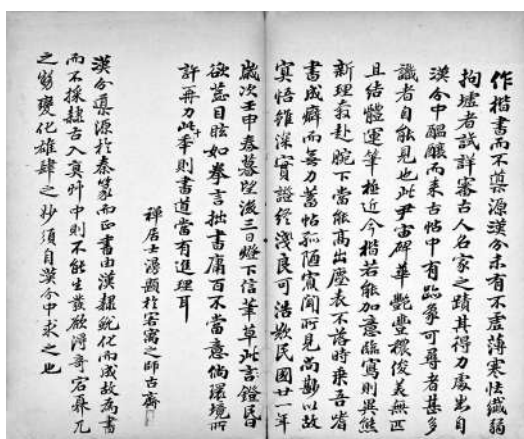 作楷書而不稟源漢分未有不虛薄寒怯纖弱
拘墟者試詳審古人名家之蹟其得力處出自
漢分中醞釀而來古帖中有跡象可尋者甚多
識者自能見也此尹宙碑華艷豐穠俊美無匹
且結體運筆極近今楷若能加意臨寫則異態
新理奔赴腕下當能高出塵表不落時乘吾嗜
書成癖而無力蓄帖孤陋寡聞所見尚尠以故
冥悟雖深實證終淺良可浩歎民國廿一年
歲次壬申春暮望後三日燈下信筆草此言鐙昏
欲蕊目眩如拳言拙書庸百不當意倘環境所
許再力此十季則書道當有進理耳
禪居士湯顯於宕寓之師古齋
漢分稟源於秦篆而正書由漢隸蛻化而成故為書
而不採隸古入真艸中則不能生發欲得奇宕鼎兀
之勢變化雄肆之妙須自漢分中求之也